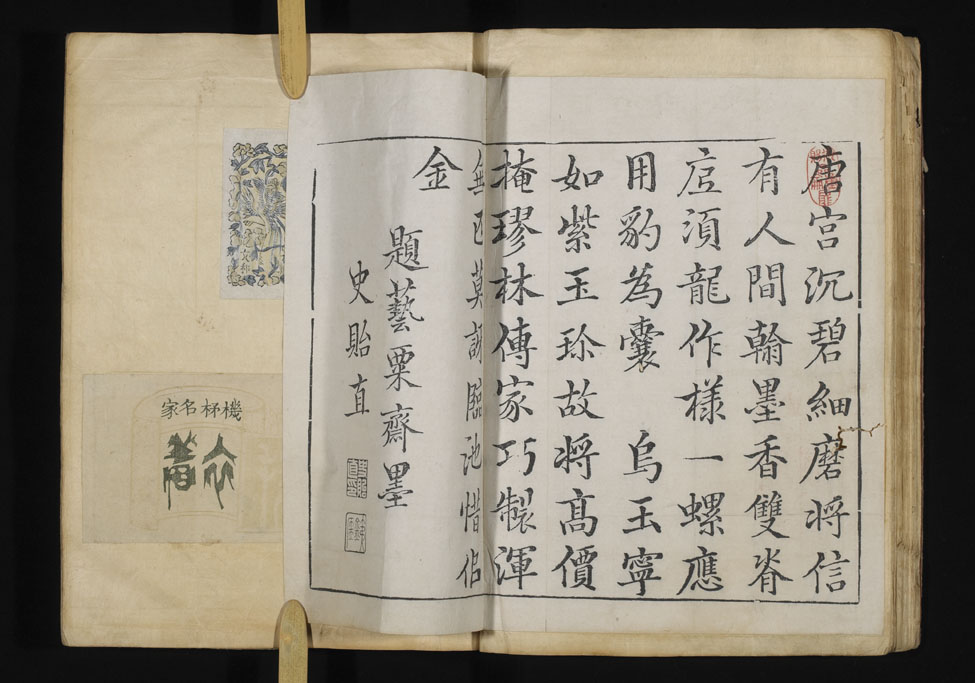 唐宮沉碧細磨將信
有人間翰墨香雙脊
底須龍作樣一螺應
用豹為囊 烏玉寧
如紫玉珍故將髙價
掩璆林傳家巧製渾
無匹莫訝臨池惜佀
金
題藝粟齋墨
史貽直
機杼名家